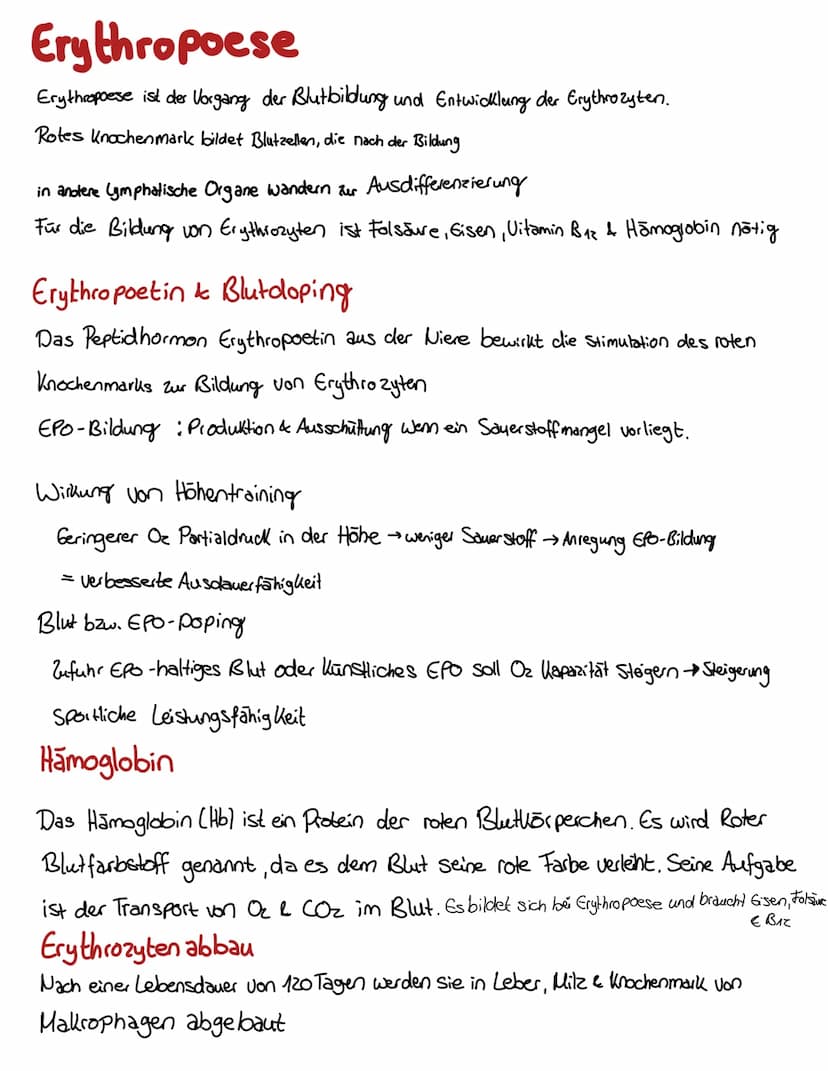 Erythropoese
Erythropoese ist der Vorgang der Blutbildung und Entwicklung der Erythrozyten.
Rotes Knochenmark bildet Blutzellen, die nach der Bildung
in andere lymphatische Organe wandern zur Ausdifferenzierung
Für die Bildung von Erythrozyten ist Folsäure, Eisen, Vitamin B12 & Hämoglobin nötig
Erythropoetin & Blutdoping
Das Peptidhormon Erythropoetin aus der Niere bewirkt die Stimulation des roten
Knochenmarks zur Bildung von Erythrozyten
EPO-Bildung : Produktion & Ausschüttung wenn ein Sauerstoffmangel vorliegt.
Wirkung von Höhentraining
Geringerer O2 Partialdruck in der Höhe → weniger Sauerstoff → Anregung EPO-Bildung
= verbesserte Ausdauerfähigkeit
Blut bzw. EPO-Doping
Zufuhr EPO-haltiges Blut oder künstliches EPO soll O2 Kapazität steigern → Steigerung
Sportliche Leistungsfähigkeit
Hämoglobin
Das Hämoglobin (Hb) ist ein Protein der roten Blutkörperchen. Es wird Roter
Blutfarbstoff genannt, da es dem Blut seine rote Farbe verleiht. Seine Aufgabe
ist der Transport von O2 & CO2 im Blut. Es bildet sich bei Erythropoese und braucht Eisen, Folsäure
& B12
Erythrozytenabbau
Nach einer Lebensdauer von 120 Tagen werden sie in Leber, Milz & Knochenmark von
Makrophagen abgebaut